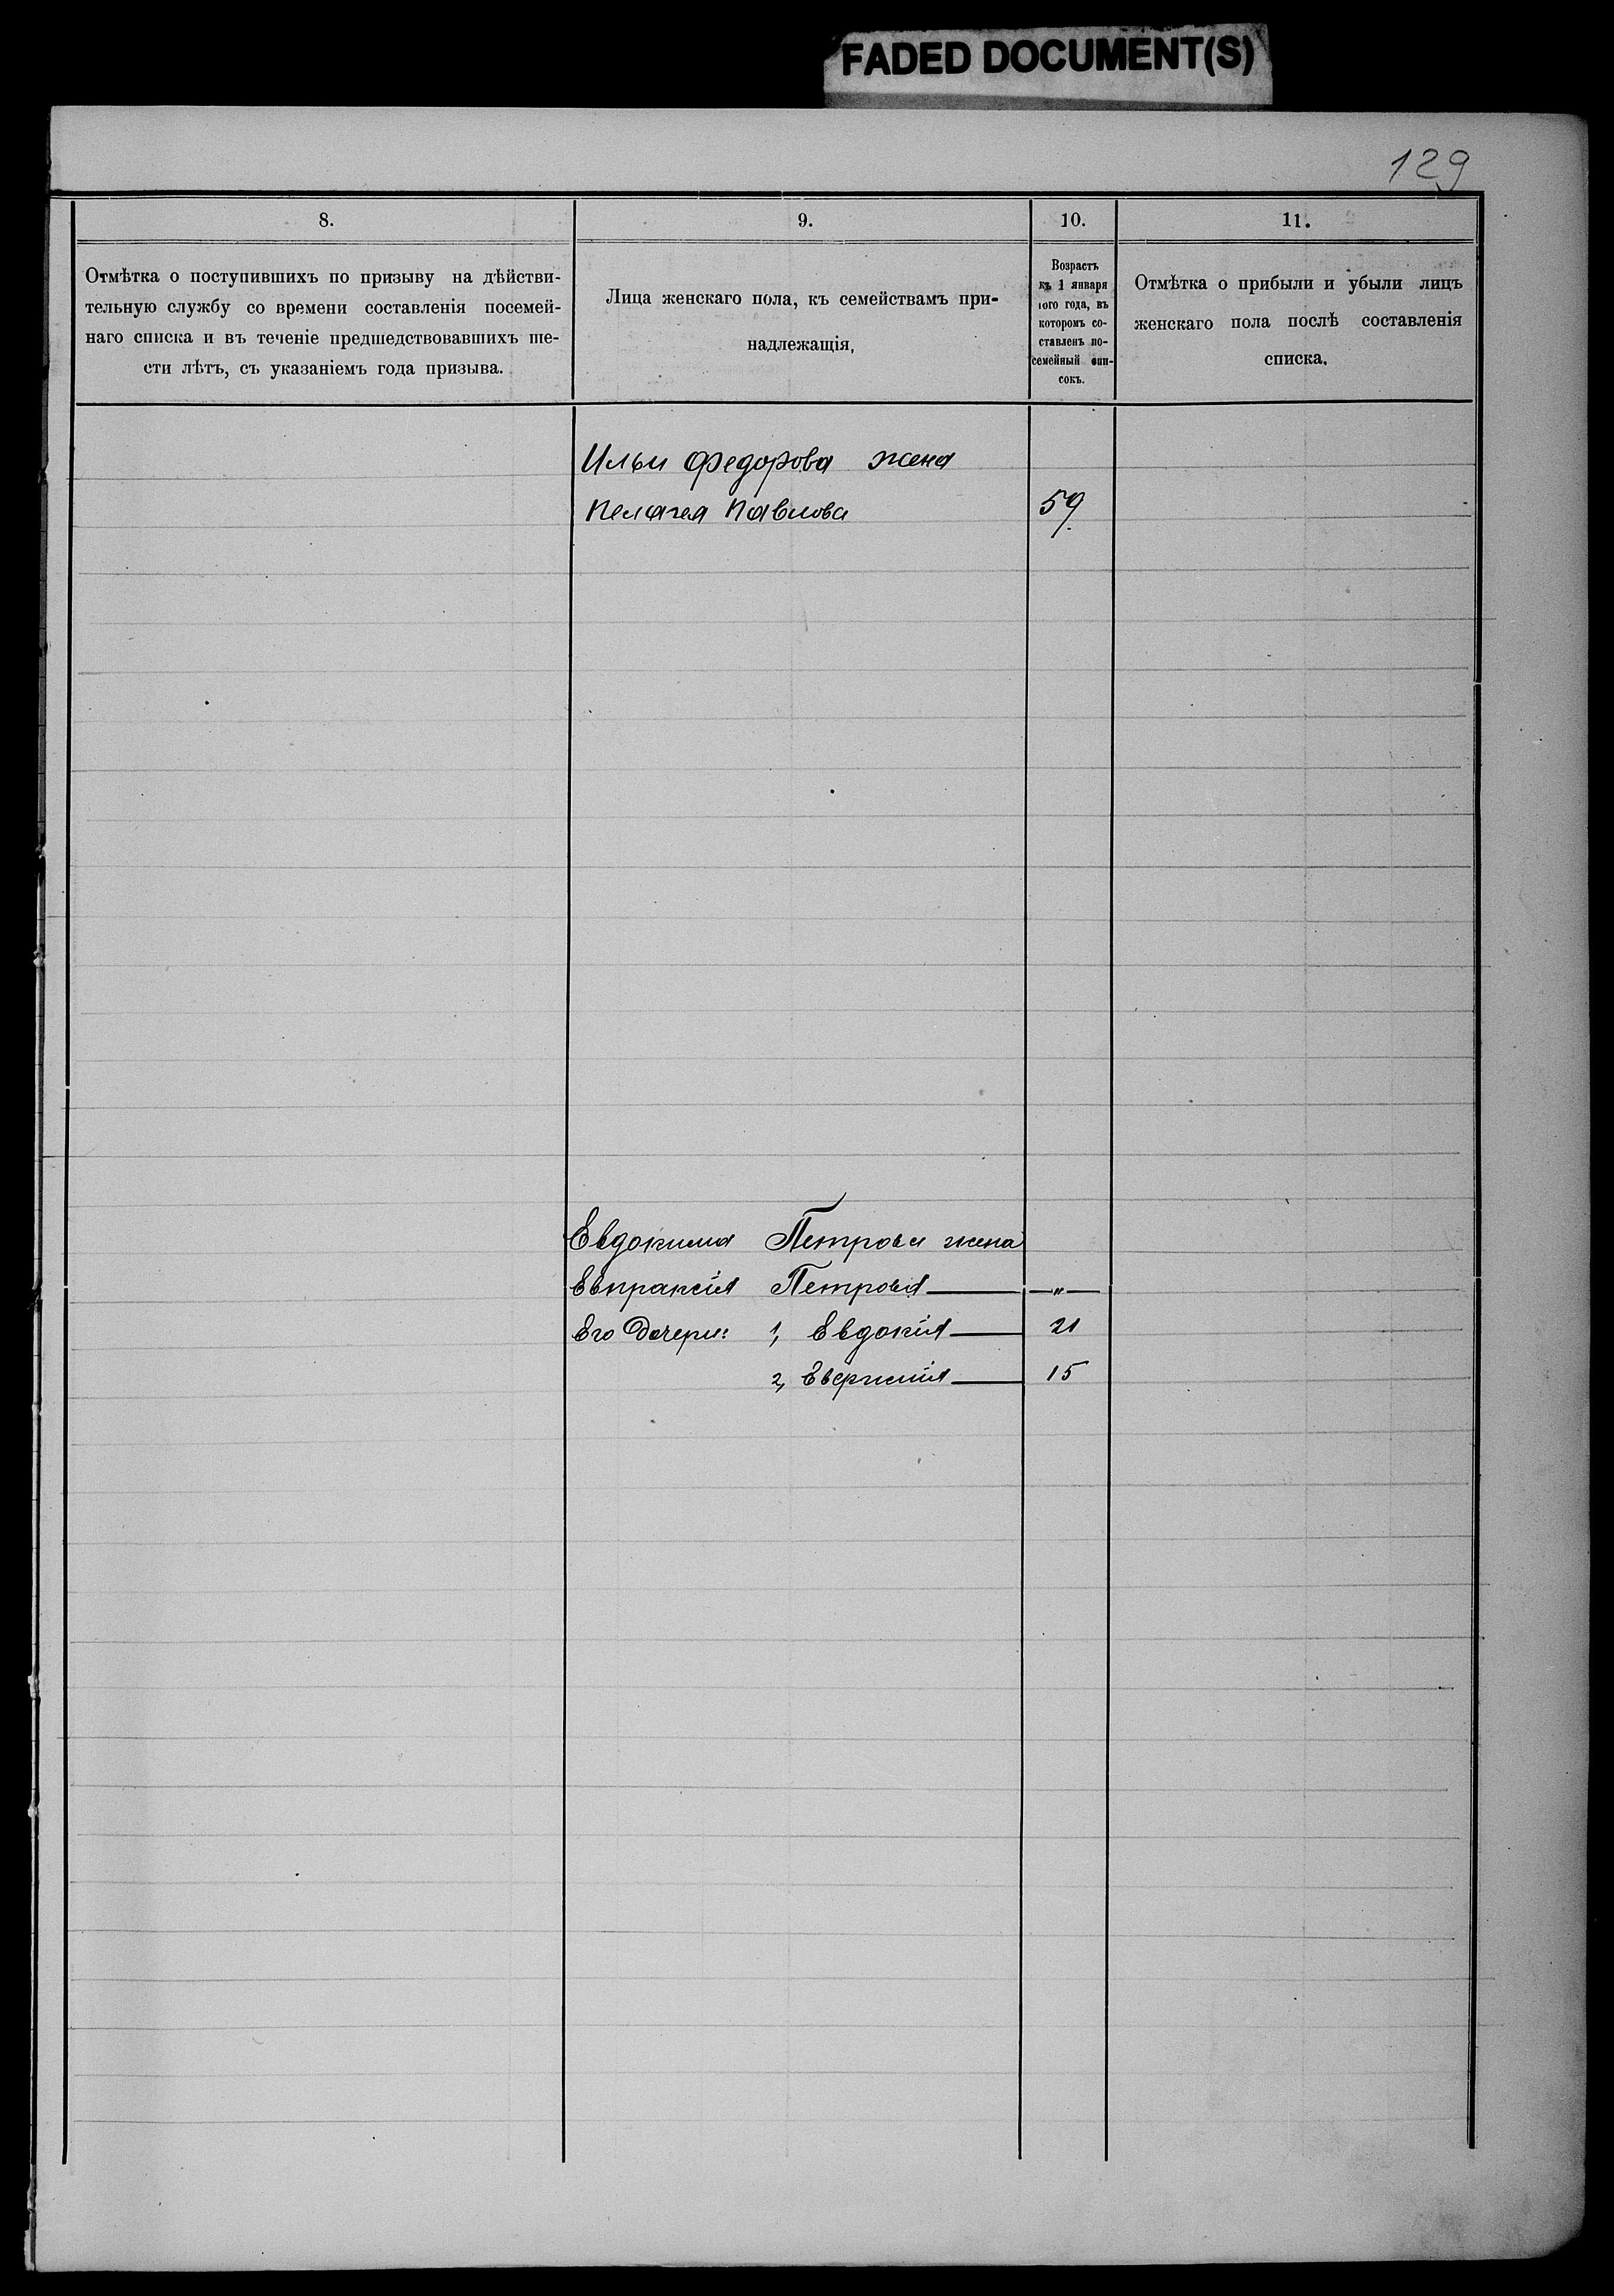 FADED DOCUMENT(S)
129
8.
9.
10.
11.
Отмѣтка о поступившихъ по призыву на дѣйстви-
тельную службу со времени составленія посемей-
наго списка и въ теченіе предшедствовавшихъ ше-
сти лѣтъ, съ указаніемъ года призыва.
Лица женскаго пола, къ семействамъ при-
надлежащія,
Возрастъ
къ 1 января
того года, въ
которомъ со-
ставленъ по-
семейный спи-
сокъ.
Отмѣтка о прибыли и убыли лицъ
женскаго пола послѣ составленія
списка.
Ильи Федорова жена
Пелагея Павлова 59
Евдокима Петрова жена
Евпраксія Петрова — „ —
Его Дочери: 1, Евдокія — 21
2, — 15